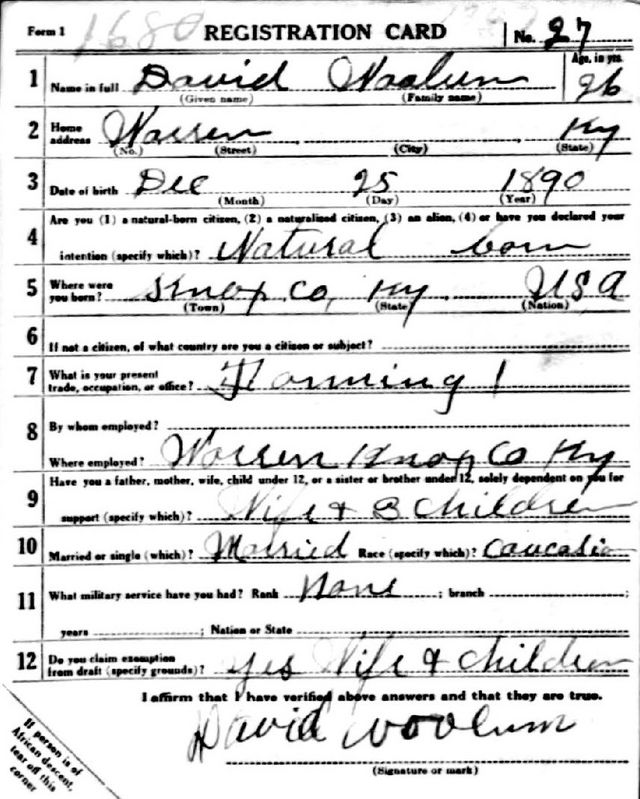 Form 1 1680 REGISTRATION CARD No. 27
1 Name in full David Woolum Age, in yrs. 26
(Given name) (Family name)
2 Home address Warren Ky
(No.) (Street) (City) (State)
3 Date of birth Dec 25 1890
(Month) (Day) (Year)
4 Are you (1) a natural-born citizen, (2) a naturalized citizen, (3) an alien, (4) or have you declared your
intention (specify which)? Natural born
5 Where were you born? Knox Co, Ky. USA
(Town) (State) (Nation)
6 If not a citizen, of what country are you a citizen or subject?
7 What is your present trade, occupation, or office? Farming
8 By whom employed?
Where employed? Warren Knox Co Ky
9 Have you a father, mother, wife, child under 12, or a sister or brother under 12, solely dependent on you for
support (specify which)? Wife & 3 Children
10 Married or single (which)? Married Race (specify which)? Caucasia
11 What military service have you had? Rank None ; branch ;
years ; Nation or State
12 Do you claim exemption from draft (specify grounds)? yes Wife & Children
I affirm that I have verified above answers and that they are true.
David Woolum
(Signature or mark)
If person is of
African descent,
tear off this
corner